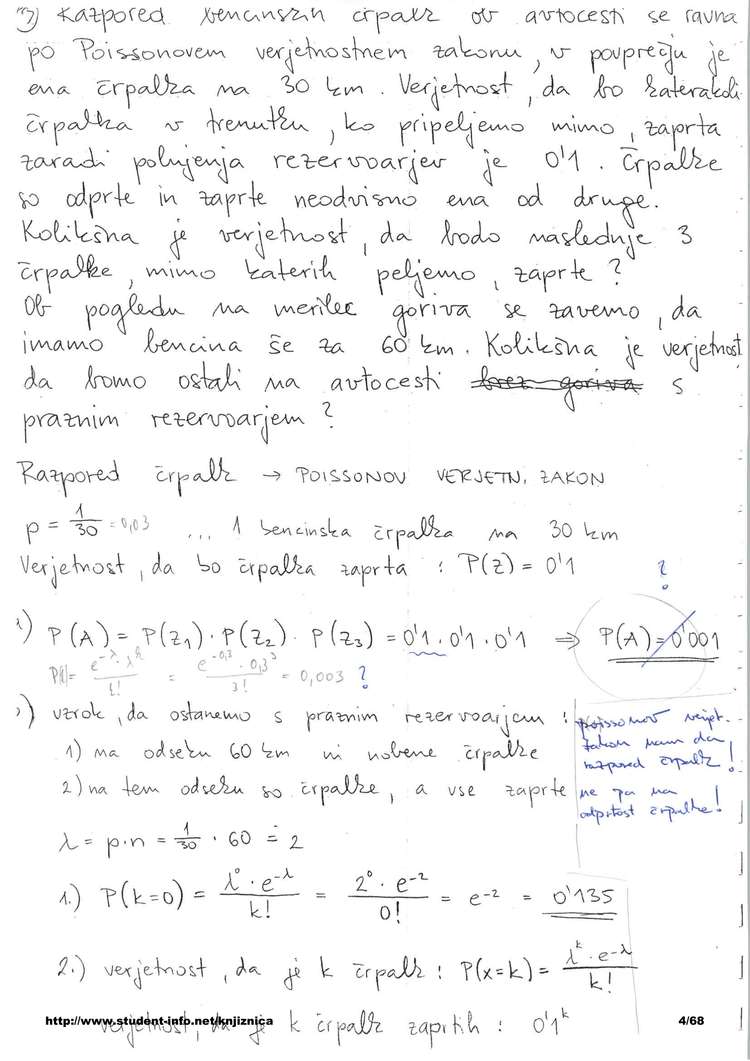 3) Razpored bencinskih črpalk ob avtocesti se ravna
po Poissonovem verjetnostnem zakonu, v povprečju je
ena črpalka na 30 km. Verjetnost, da bo katerakoli
črpalka v trenutku, ko pripeljemo mimo, zaprta
zaradi polnjenja rezervoarjev je 0'1. Črpalke
so odprte in zaprte neodvisno ena od druge.
Kolikšna je verjetnost, da bodo naslednje 3
črpalke, mimo katerih peljemo, zaprte?
Ob pogledu na merilec goriva se zavemo, da
imamo bencina še za 60 km. Kolikšna je verjetnost
da bomo ostali na avtocesti brez goriva s
praznim rezervoarjem?
Razpored črpalk → POISSONOV VERJETN. ZAKON
p = 1/30 = 0,03 ... 1 bencinska črpalka na 30 km
Verjetnost, da bo črpalka zaprta : P(Z) = 0'1
?
1) P(A) = P(Z₁) · P(Z₂) · P(Z₃) = 0'1 · 0'1 · 0'1 ⇒ P(A) = 0'001
= e^-0,3 · 0,3³ / 3! = 0,003 ?
2) vzrok, da ostanemo s praznim rezervoarjem :
1) na odseku 60 km ni nobene črpalke
2) na tem odseku so črpalke, a vse zaprte
poissonov verjet.
zakon nam da
razpored črpalk!
ne pa na
odprtost črpalke!
λ = p·n = 1/30 · 60 = 2
1.) P(k=0) = λ⁰ · e^-λ / k! = 2⁰ · e^-2 / 0! = e^-2 = 0'135
2.) verjetnost, da je k črpalk : P(x=k) = λ^k · e^-λ / k!
verjetnost, da je k črpalk zaprtih : 0'1^k
http://www.student-info.net/knjiznica 4/68